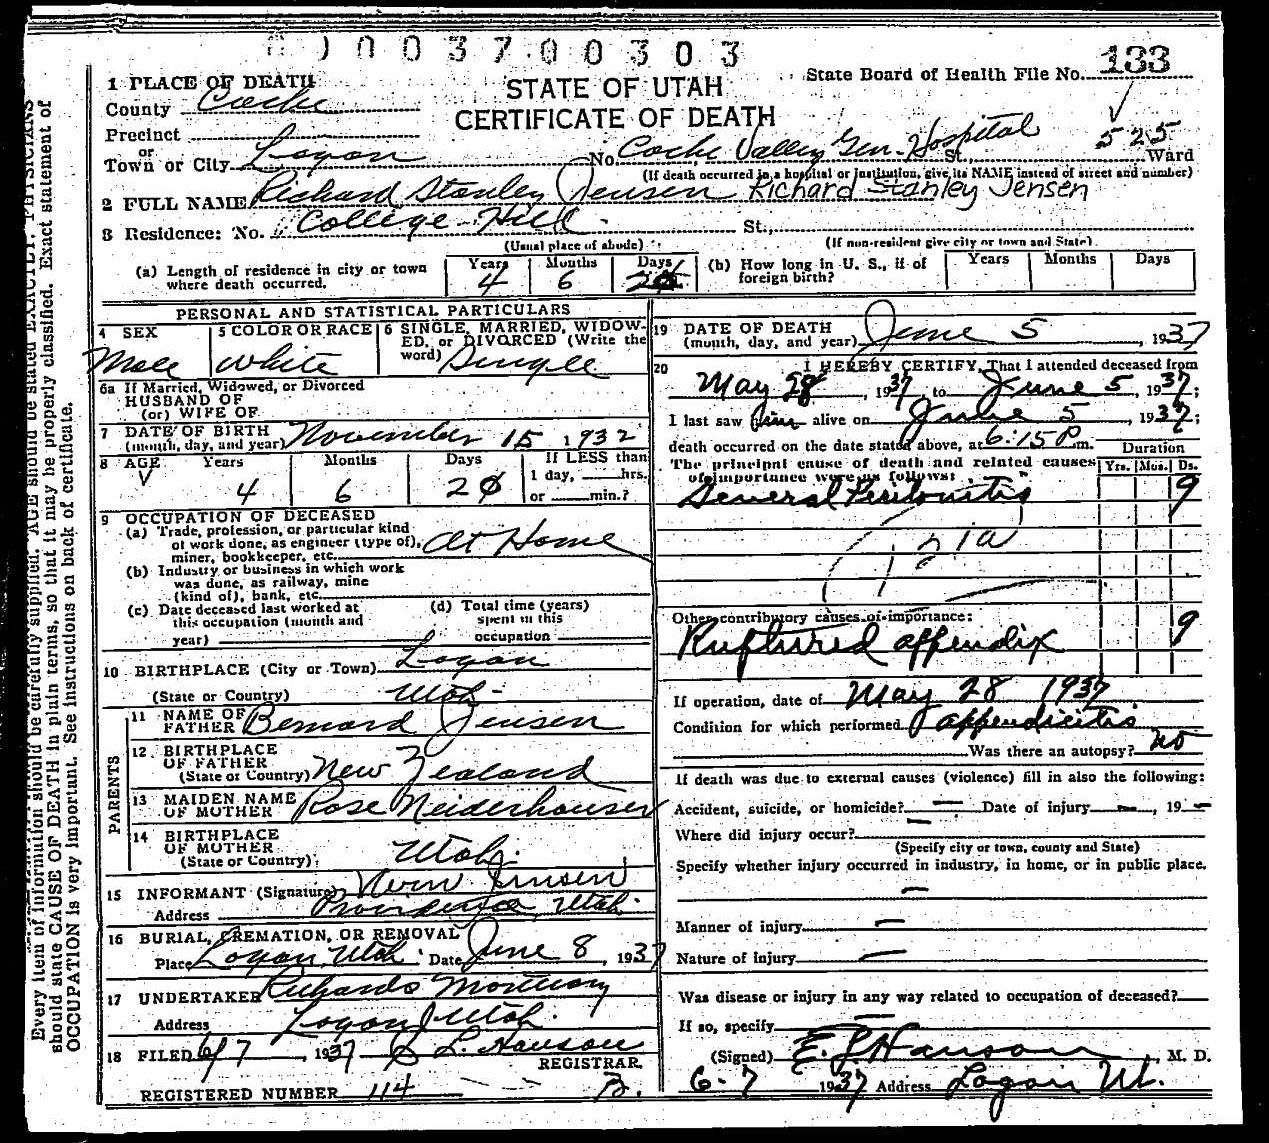 0037.00303
133
1 PLACE OF DEATH
STATE OF UTAH
State Board of Health File No.
County Cache
CERTIFICATE OF DEATH
Precinct
or
Town or City Logan No. Cache Valley Gen. Hospital St., 525 Ward
(If death occurred in a hospital or institution, give its NAME instead of street and number)
2 FULL NAME Richard Stanley Jensen Richard Stanley Jensen
3 Residence: No. College Hill St.,
(Usual place of abode) (If non-resident give city or town and State)
(a) Length of residence in city or town where death occurred. Years 4 Months 6 Days 20
(b) How long in U. S., if of foreign birth? Years Months Days
PERSONAL AND STATISTICAL PARTICULARS
4 SEX Male
5 COLOR OR RACE White
6 SINGLE, MARRIED, WIDOWED, or DIVORCED (Write the word) Single
6a If Married, Widowed, or Divorced
HUSBAND OF
(or) WIFE OF
7 DATE OF BIRTH (month, day, and year) November 15 1932
8 AGE Years 4 Months 6 Days 20 If LESS than 1 day, hrs. or min.?
9 OCCUPATION OF DECEASED
(a) Trade, profession, or particular kind of work done, as engineer (type of), miner, bookkeeper, etc. At Home
(b) Industry or business in which work was done, as railway, mine (kind of), bank, etc.
(c) Date deceased last worked at this occupation (month and year)
(d) Total time (years) spent in this occupation
10 BIRTHPLACE (City or Town) Logan
(State or Country) Utah
PARENTS
11 NAME OF FATHER Bernard Jensen
12 BIRTHPLACE OF FATHER (State or Country) New Zealand
13 MAIDEN NAME OF MOTHER Rose Neiderhauser
14 BIRTHPLACE OF MOTHER (State or Country) Utah
15 INFORMANT (Signature) Vern Jensen
Address Providence, Utah
16 BURIAL, CREMATION, OR REMOVAL
Place Logan, Utah Date June 8, 1937
17 UNDERTAKER Richards Mortuary
Address Logan, Utah
18 FILED 6/7, 1937 L. Hanson
REGISTRAR.
REGISTERED NUMBER 114
19 DATE OF DEATH (month, day, and year) June 5, 1937
20 I HEREBY CERTIFY, That I attended deceased from
May 28, 1937 to June 5, 1937;
I last saw him alive on June 5, 1937;
death occurred on the date stated above, at 6:15 P m.
The principal cause of death and related causes of importance were as follows:
Duration
Yrs. Mos. Ds.
General Peritonitis 9
121a
Other contributory causes of importance:
Ruptured appendix 9
If operation, date of May 28 1937
Condition for which performed appendicitis
Was there an autopsy? no
If death was due to external causes (violence) fill in also the following:
Accident, suicide, or homicide? — Date of injury —, 19 —
Where did injury occur? —
(Specify city or town, county and State)
Specify whether injury occurred in industry, in home, or in public place.
—
Manner of injury —
Nature of injury —
Was disease or injury in any way related to occupation of deceased?
If so, specify —
(Signed) E. L. Hanson, M. D.
6-7 1937 Address Logan Ut.
Every item of information should be carefully supplied. AGE should be stated EXACTLY. PHYSICIANS
should state CAUSE OF DEATH in plain terms, so that it may be properly classified. Exact statement of
OCCUPATION is very important. See instructions on back of certificate.